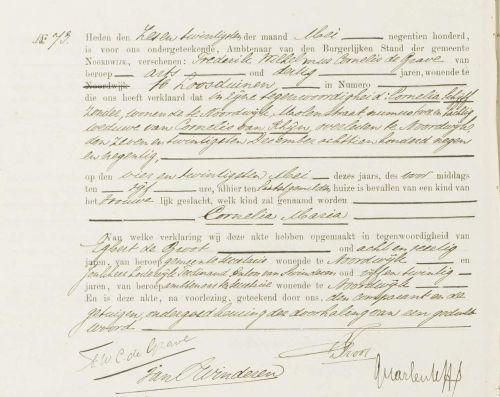 № 73. Heden den zes en twintigsten der maand Mei negentien honderd,
is voor ons ondergeteekende, Ambtenaar van den Burgerlijken Stand der gemeente
NOORDWIJK, verschenen: Frederik Willem Cornelis de Grave van
beroep arts oud dertig jaren, wonende te
Noordwijk te Loosduinen in Numero
die ons heeft verklaard dat in zijne tegenwoordigheid: Cornelia
zonder, wonende te Noordwijk, Molenstraat nummer twee en tachtig
weduwe van Cornelis van Rhijn, overleden te Noordwijk,
den zeven en twintigsten December achttien honderd negen
en negentig,
op den vier en twintigsten Mei dezes jaars, des voor middags
ten vijf ure, alhier ten huize is bevallen van een kind van
het vrouwelijk geslacht, welk kind zal genaamd worden
Cornelia Maria
Van welke verklaring wij deze akte hebben opgemaakt in tegenwoordigheid van
Egbert de Groot oud acht en zestig
jaren, van beroep gemeentesecretaris wonende te Noordwijk en
Jonkheer Ferdinand van Swinderen oud vijf en twintig
jaren, van beroep wonende te Noordwijk
En is deze akte, na voorlezing, geteekend door ons, den comparant en de
getuigen, onder goedkeuring der doorhaling van een gedrukt
woord.
F. W. C. de Grave
van Swinderen
de Groot